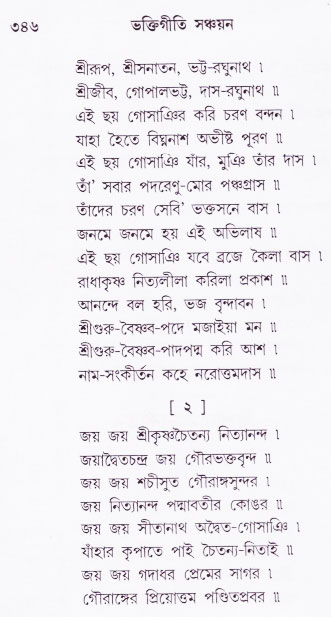 ৩৪৬ ভক্তিগীতি সঞ্চয়ন
শ্রীরূপ, শ্রীসনাতন, ভট্ট-রঘুনাথ ৷
শ্রীজীব, গোপালভট্ট, দাস-রঘুনাথ ৷৷
এই ছয় গোসাঞির করি চরণ বন্দন ৷
যাহা হৈতে বিঘ্ননাশ অভীষ্ট পূরণ ৷৷
এই ছয় গোসাঞি যাঁর, মুঞি তাঁর দাস ৷
তাঁ' সবার পদরেণু-মোর পঞ্চগ্রাস ৷৷
তাঁদের চরণ সেবি' ভক্তসনে বাস ৷
জনমে জনমে হয় এই অভিলাষ ৷৷
এই ছয় গোসাঞি যবে ব্রজে কৈলা বাস ৷
রাধাকৃষ্ণ নিত্যলীলা করিলা প্রকাশ ৷৷
আনন্দে বল হরি, ভজ বৃন্দাবন ৷
শ্রীগুরু-বৈষ্ণব-পদে মজাইয়া মন ৷৷
শ্রীগুরু-বৈষ্ণব-পাদপদ্ম করি আশ ৷
নাম-সংকীর্তন কহে নরোত্তমদাস ৷৷
[ ২ ]
জয় জয় শ্রীকৃষ্ণচৈতন্য নিত্যানন্দ ৷
জয়াদ্বৈতচন্দ্র জয় গৌরভক্তবৃন্দ ৷৷
জয় জয় শচীসুত গৌরাঙ্গসুন্দর ৷
জয় নিত্যানন্দ পদ্মাবতীর কোঙর ৷৷
জয় জয় সীতানাথ অদ্বৈত-গোসাঞি ৷
যাঁহার কৃপাতে পাই চৈতন্য-নিতাই ৷৷
জয় জয় গদাধর প্রেমের সাগর ৷
গৌরাঙ্গের প্রিয়োত্তম পণ্ডিতপ্রবর ৷৷